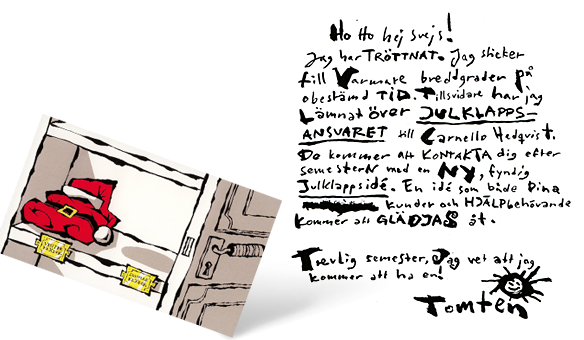 Ho Ho hej svejs!
Jag har TRÖTTNAT. Jag sticker
till Varmare breddgrader på
obestämd TID. Tillsvidare har jag
Lämnat över JULKLAPPS-
ANSVARET till Carnello Hedqvist.
De kommer att KONTAKTA dig efter
semestern med en NY, fyndig
Julklappsidé. En idé som både Dina
kunder och HJÄLPbehövande
kommer att GLÄDJAS åt.
Trevlig semester, Jag vet att jag
kommer att ha en!
Tomten